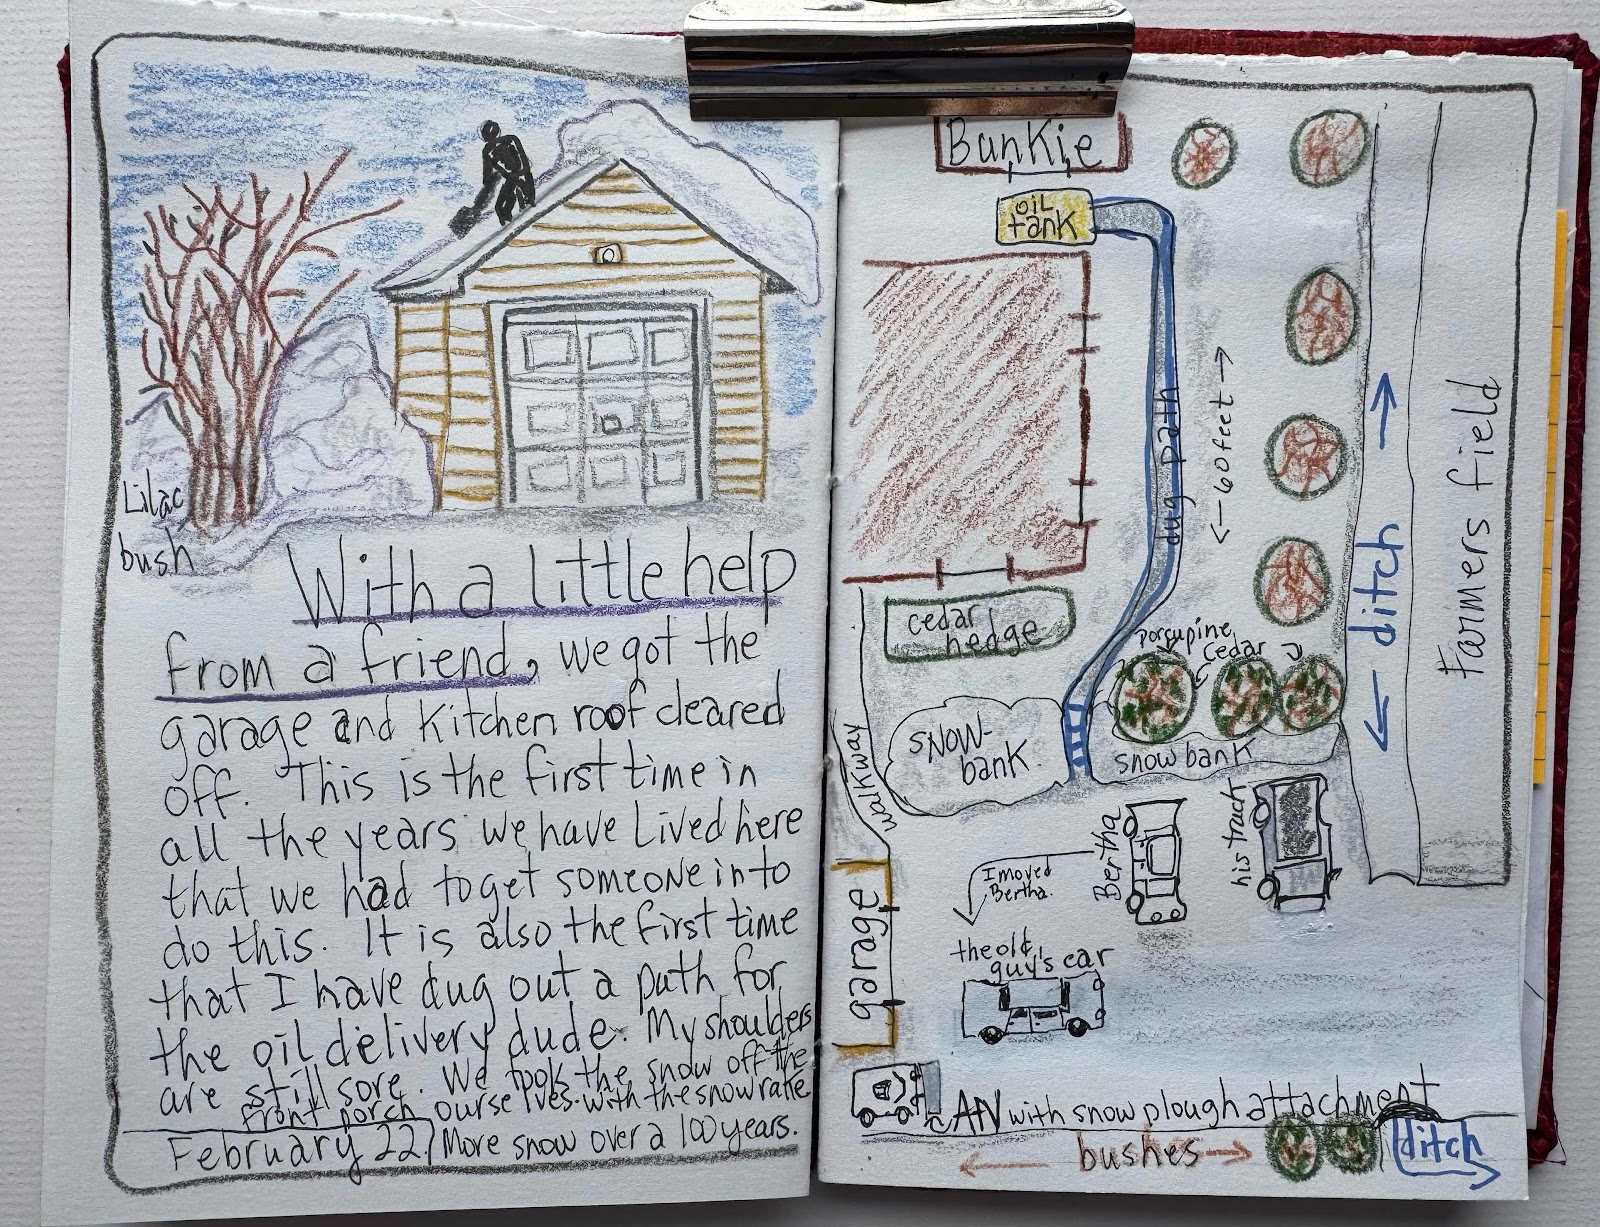 Lilac
bush
With a little help
from a friend, we got the
garage and kitchen roof cleared
off. This is the first time in
all the years we have Lived here
that we had to get someone in to
do this. It is also the first time
that I have dug out a path for
the oil delivery dude. My shoulders
are still sore. We took the snow off the
front porch ourselves with the snowrake
February 22, More snow over a 100 years.
BunKie
OIL
tank
dug path
←60 feet→
← ditch →
Farmers field
cedar
hedge
porcupine
cedar
SNOW-
bank.
snow bank
walkway
Bertha
his truck
I moved
Bertha.
the old
guy's car
garage
AN with snow plough attachment
← bushes →
ditch